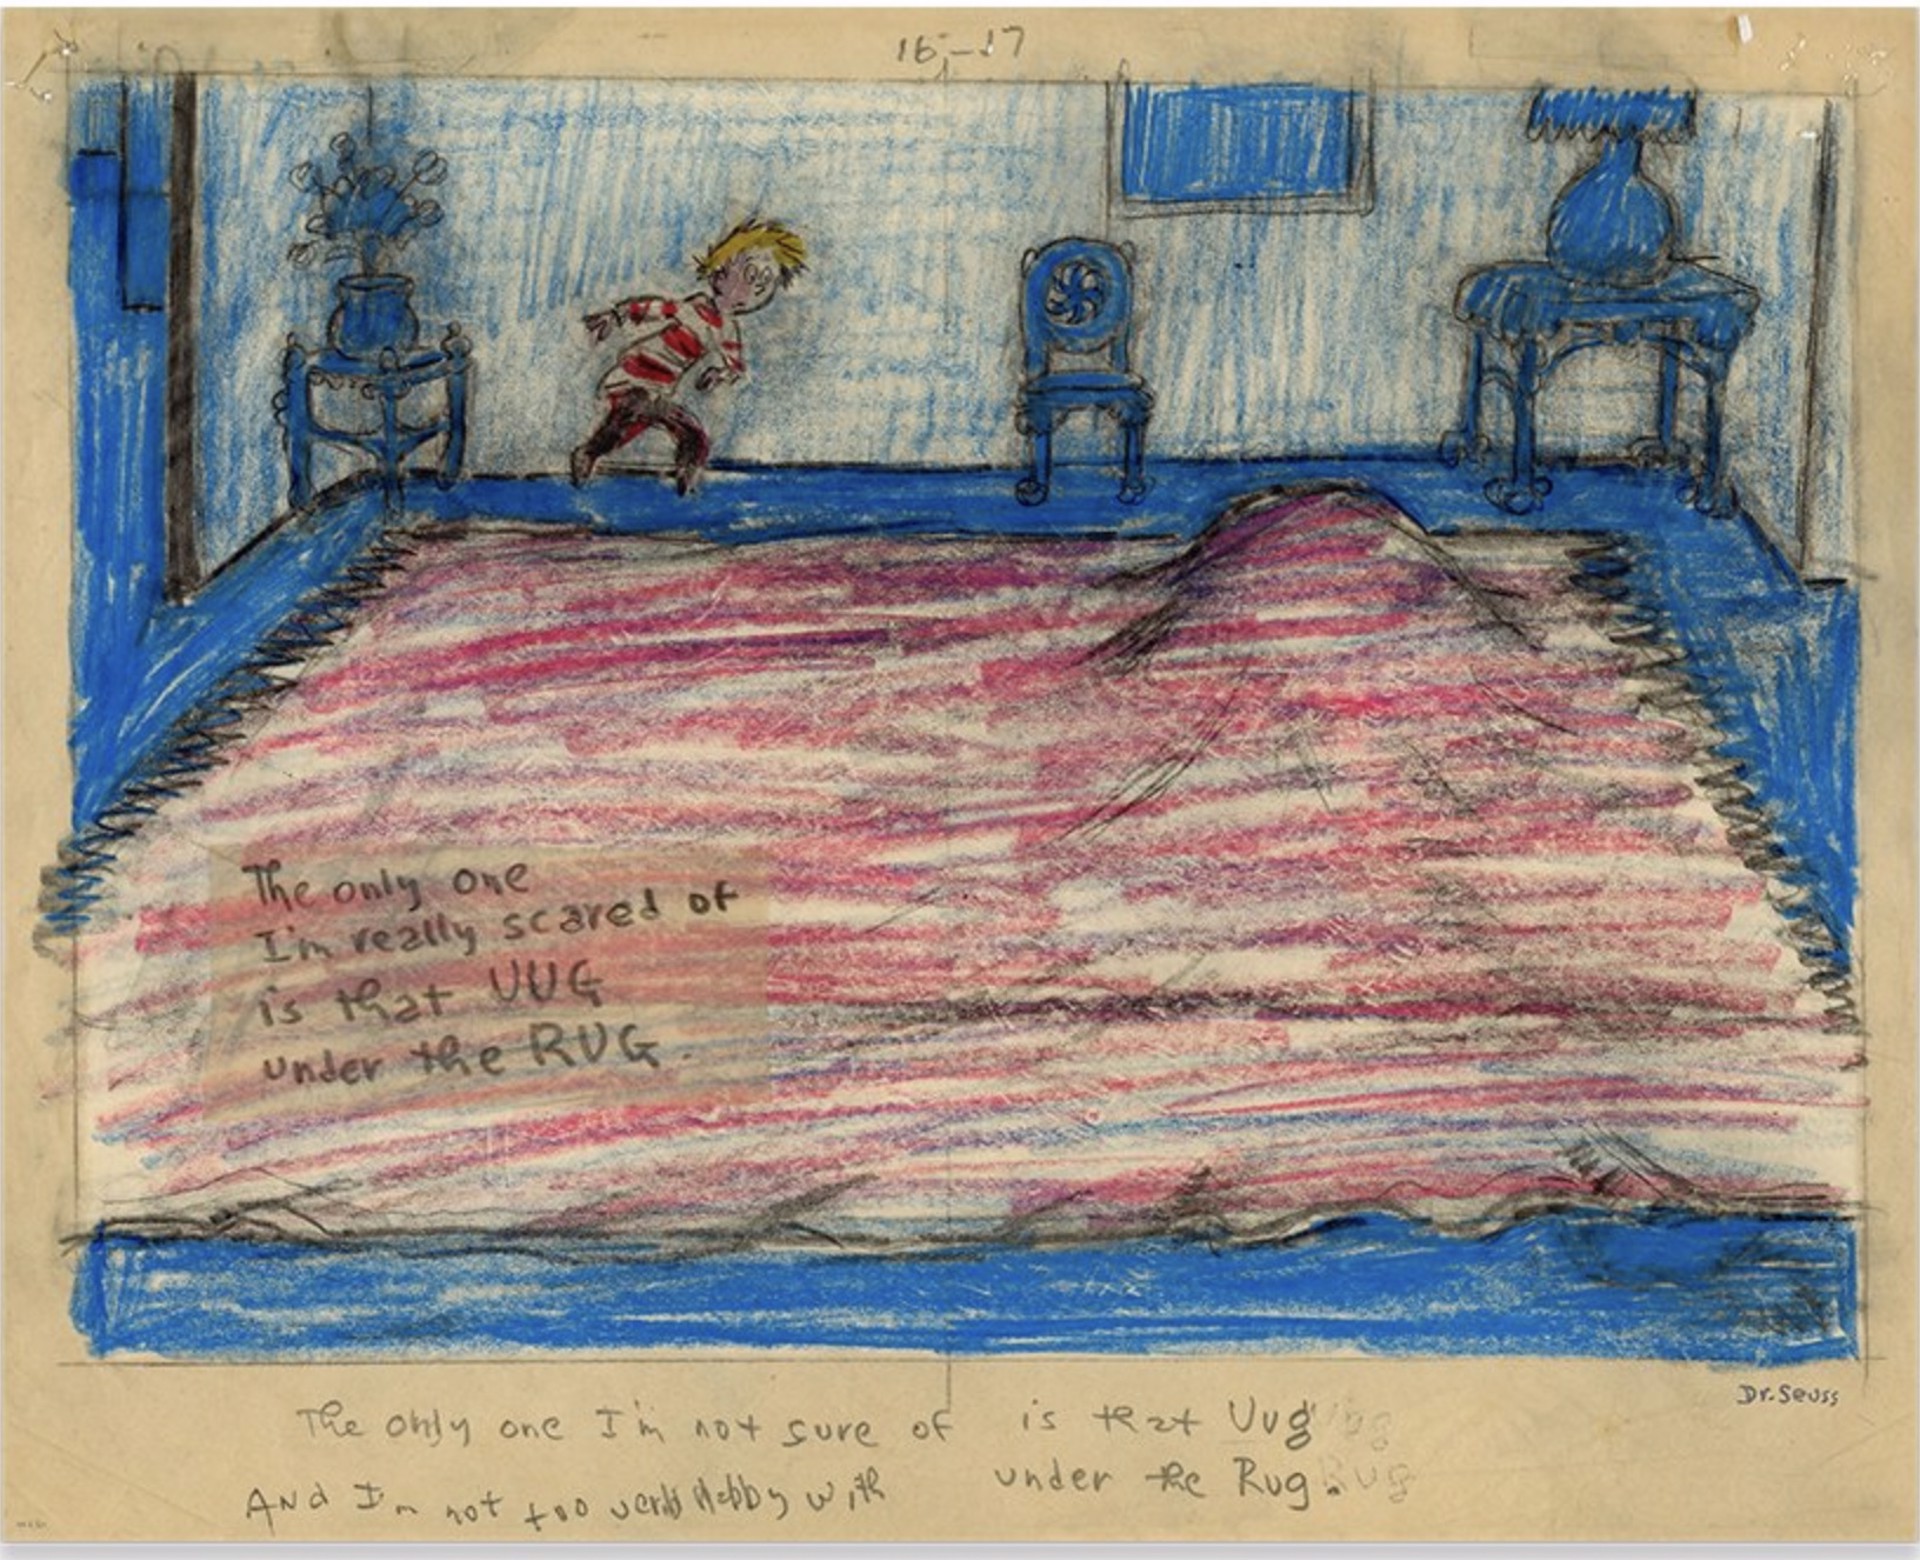 16-17
The only one
I'm really scared of
is that VUG
under the RUG.
Dr. Seuss
The only one I'm not sure of is that Vug
And I'm not too happy with under the Rug. Rug